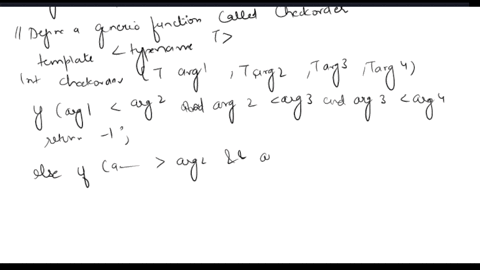 // Define a generic function called Checkorder
template < typename T>
Int checkorder (T arg1 , T arg2 , T arg3 , T arg4)
if (arg1 < arg2 and arg 2 < arg3 and arg 3 < arg4
return -1 ;
else if (a > arg2 && a